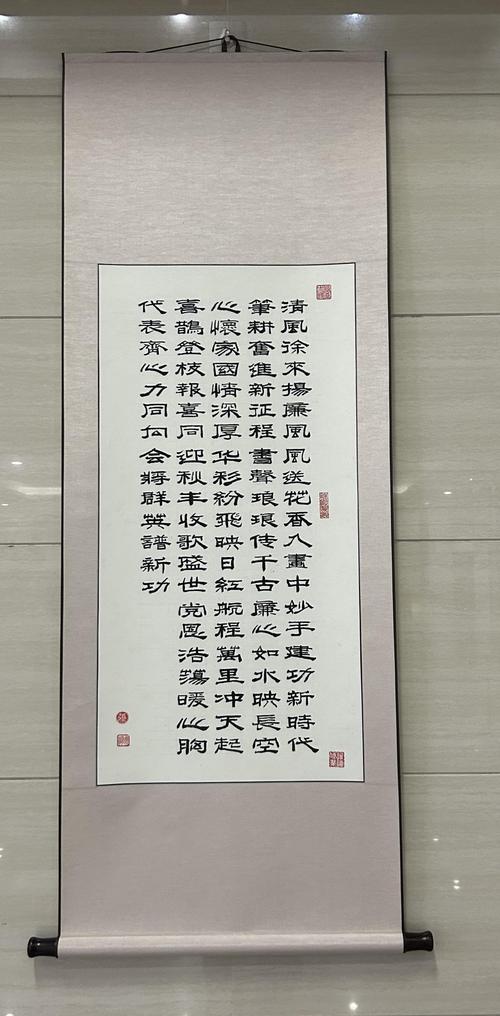 清風徐來揚廉風風送花香入畫中妙手建功新時代
筆耕奮進新征程書聲琅琅传千古廉心如水映長空
心懷家國情深厚华彩紛飛映日紅航程萬里冲天起
喜鵲登枝報喜同迎秋丰收歌盛世党恩浩蕩暖心胸
代表齊心力同会群英譜新功